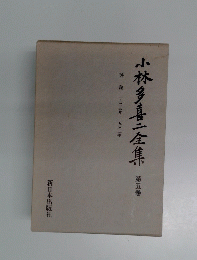 小林多喜二全集
第五巻
新日本出版社